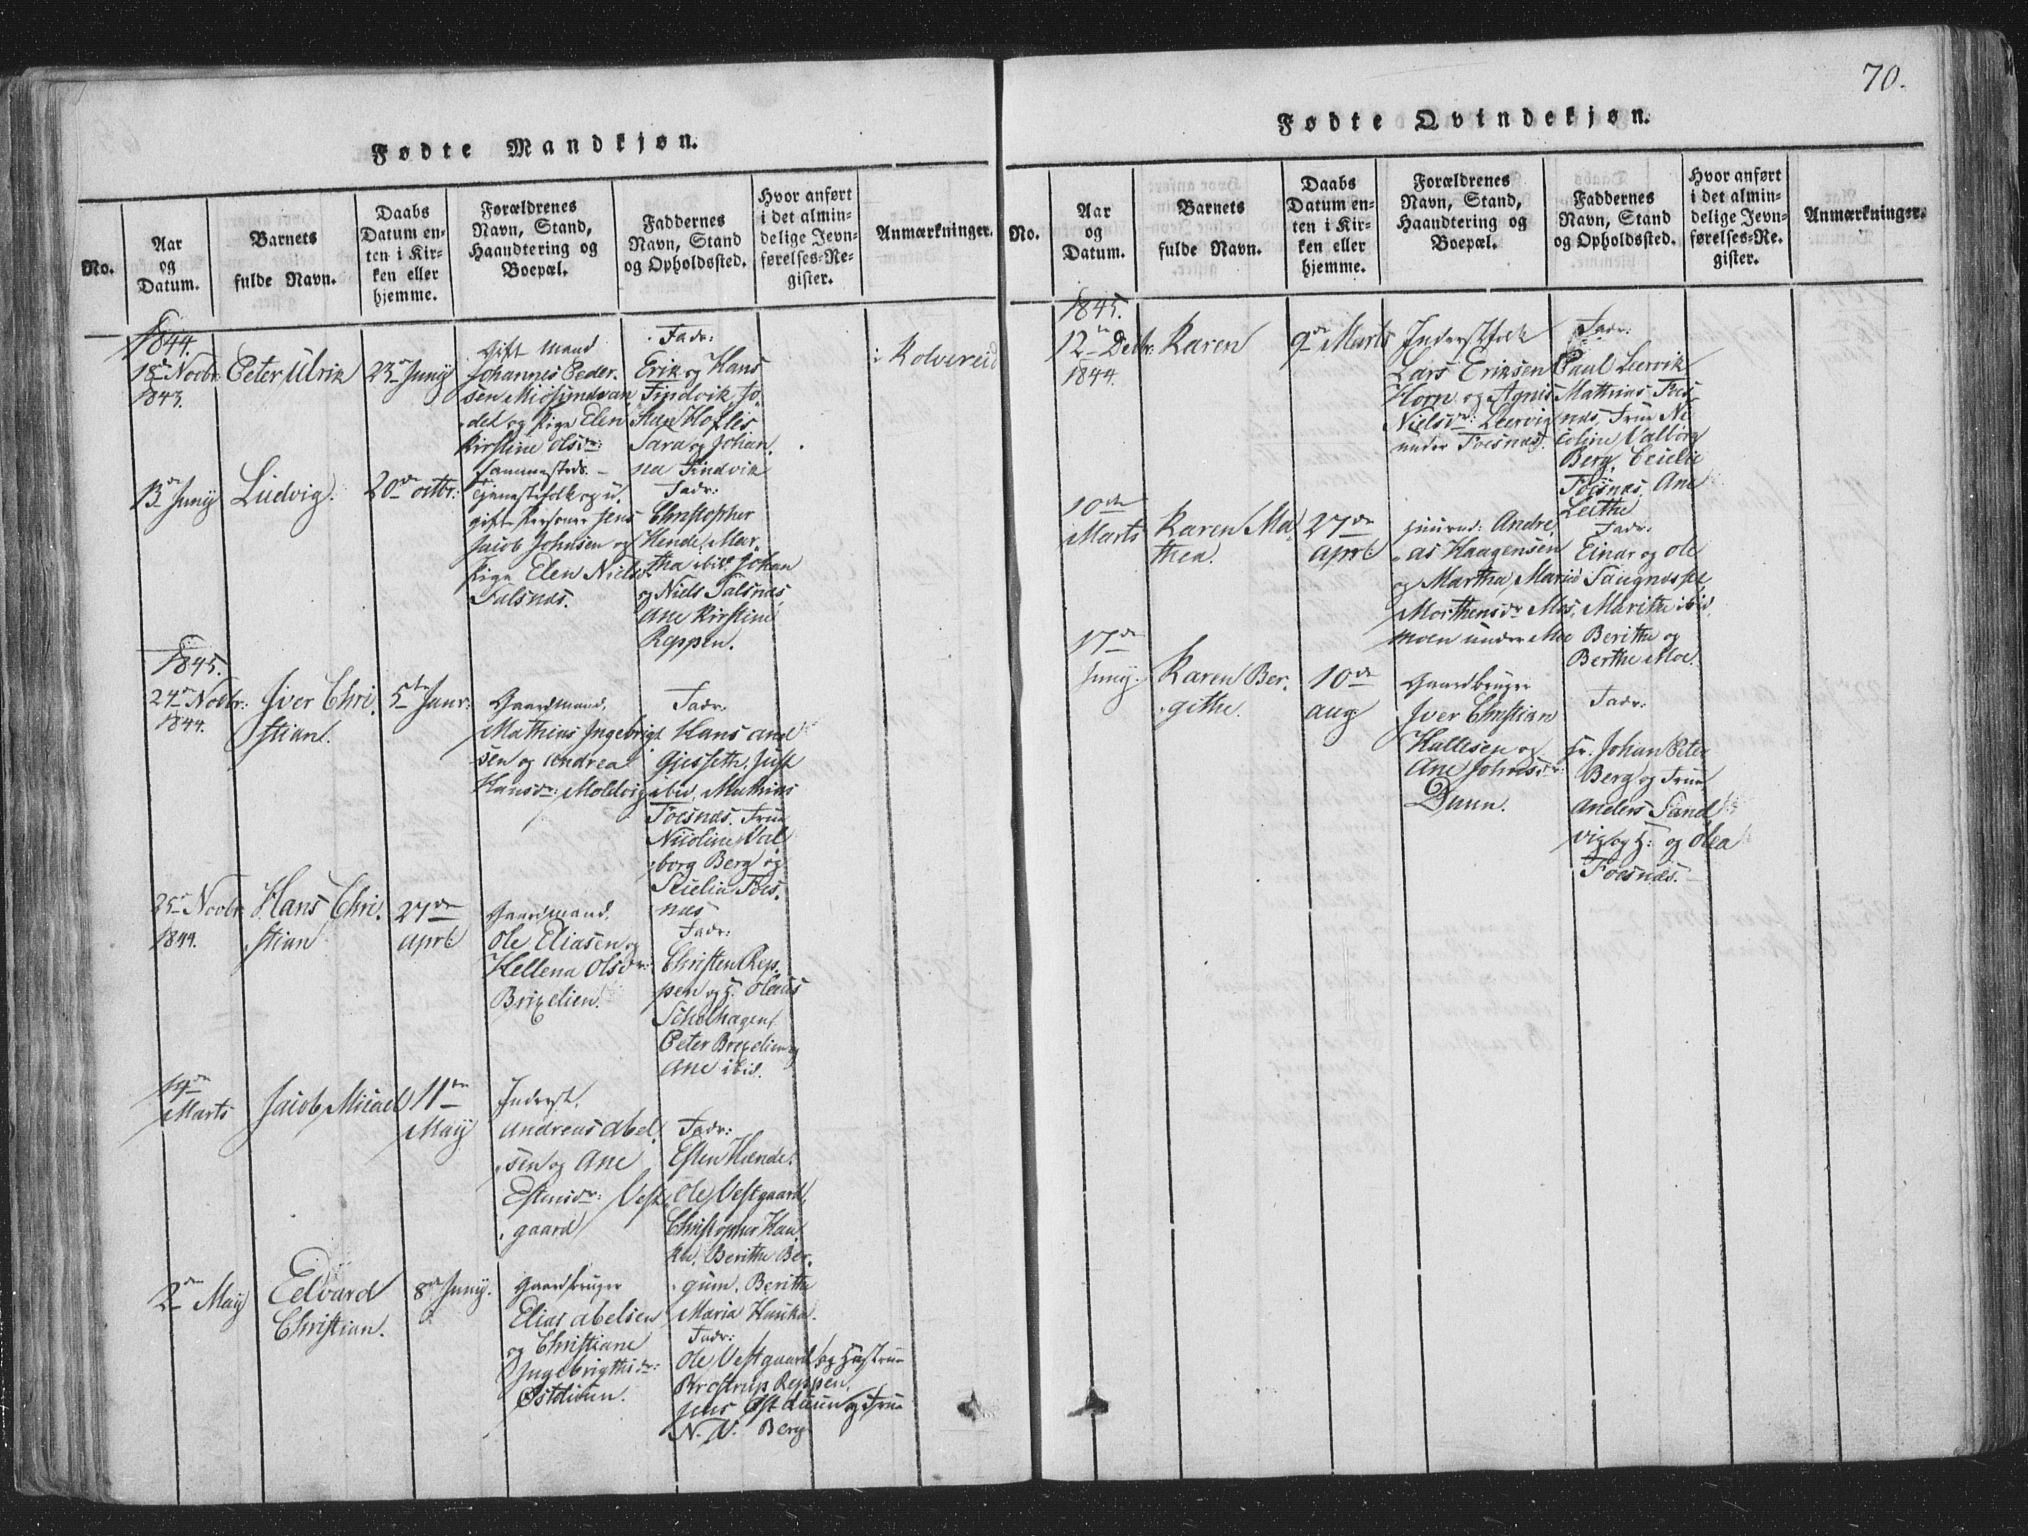 70.
Fødte Mandkjøn.
No.
Aar
og
Datum.
Barnets
fulde Navn.
Daabs
Datum en-
ten i Kir-
ken eller
hjemme.
Forældrenes
Navn, Stand,
Haandtering og
Boepæl.
Faddernes
Navn, Stand
og Opholdssted.
Hvor anført
i det almin-
delige Jevn-
førelses-Re-
gister.
Anmærkninger.
1844.
18de Novbr
1843.
Peter Ulrik
23de Junij
Gift Mand
Johannes Peder-
sen
det og Pige Elen
Kirstine Olsdr:
sammesteds.
Fadr:
Erik og Hans
Findvik, Jo-
Hofles
Sara og Johan-
na Findvik
i Kolvereid
13de Junij
Ludvig.
20de octbr:
Tjenestefolk og u-
gift Personer Jens
Jacob Johnsen og
Pige Elen Nielsdr
Salsnæs.
Fadr:
Christopher
Hende, Mar-
tha ibid Johan
og Niels Salsnæs
Ane Kirstine
Reppen.
1845.
24de Novbr:
1844.
Iver Chri-
stian.
5te Janr:
Gaardmand.
Mathias Ingebrigt
sen og Andrea
Hansdr: Moldvig
Fadr:
Hans And
Gjesseth, Just
ibid, Mathias
Foesnæs. Frue
Nicoline Val
borg Berg og
Cicelia Foes-
næs
25de Novbr
1844.
Hans Chri-
stian
27de
Aprl
Gaardmand.
Ole Eliasen og
Hellena Olsdr:
Brixelien.
Fadr:
Christen Rep-
pen og H. Oleaus
Scholhagen,
Peter Brexelien og
Ane ibid.
14de
Marts
Jacob Micael
11te
Maij
Inderst.
Andreas Abel-
sen og Ane
Estensdr: Vest-
gaard
Fadr:
Esten Hænde.
Ole Vestgaard,
Christopher Hau-
ka, Berithe Ber-
gum. Berithe
Maria Hauka.
2de Maij
Edvard
Christian.
8de Junij.
Gaardbruger
Elias Abelsen
og Christiane
Ingebrigthsdr:
Østduun.
Fadr:
Ole Vestgaard og Hustrue
Prostrup Reppen.
Jens Østduun og Frue
N. N. Berg
Fødte Qvindekjøn.
No.
Aar
og
Datum.
Barnets
fulde Navn.
Daabs
Datum en-
ten i Kir-
ken eller
hjemme.
Forældrenes
Navn, Stand,
Haandtering og
Boepæl.
Faddernes
Navn, Stand
og Opholdssted.
Hvor anført
i det almin-
delige Jevn-
førelses-Re-
gister.
Anmærkninger.
1845.
12te Decbr.
1844.
Karen
9de Marts
Inderstfolk
Lars Eriksen
Horn og Agnis
Nielsdr: Leervig
under Foesnæs.
Fadr:
Paul Leervik
Mathias Foes-
næs, Frue Ni-
coline Valborg
Berg, Cecilie
Foesnæs, Ane
Leithe
10de
Marts
Karen Ma-
thea.
27de
Aprl
Andre-
as Haagensen
og Martha Maria
Morthensdr Moe,
moen under Moe
Fadr:
Einar og Ole
Saugnæsset,
Marithe ibid,
Berithe og
Berthe Moe.
17de
Junij.
Karen Ber-
githe.
10de
Aug
Gaardbruger
Iver Christian
Hallesen og
Ane Johnsdr
Duun.
Fadr:
Hr. Johan Peter
Berg og Frue
Anders Sand-
vig og H: og Olea
Foesnæs.